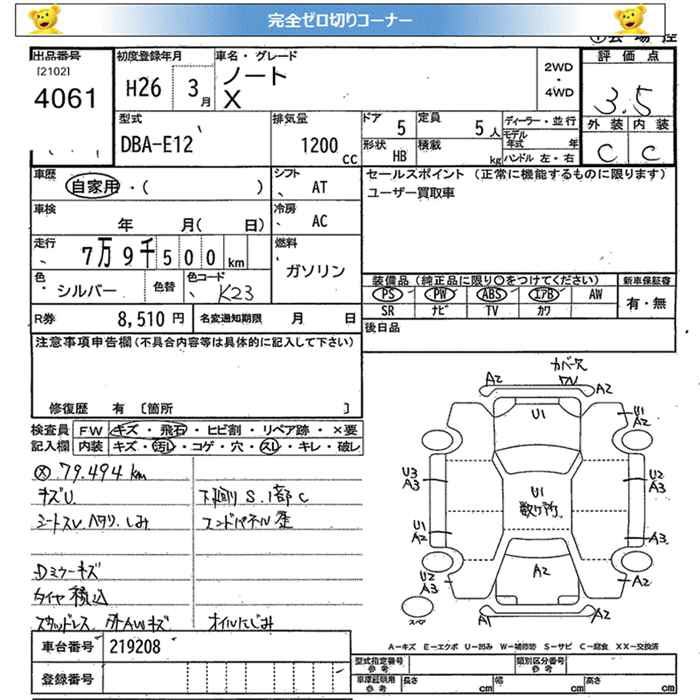 完全ゼロ切りコーナー
出品番号
[2102]
4061
初度登録年月
H26 3月
車名・グレード
ノート
X
2WD
・
4WD
評価点
3.5
外装 内装
C C
型式
DBA-E12
排気量
1200
cc
ドア 5
定員 5人
形状 HB
積載 kg
ディーラー・並行
モデル年式 年
ハンドル 左・右
車歴
自家用・( )
シフト
AT
セールスポイント (正常に機能するものに限ります)
ユーザー買取車
車検
年 月( 日)
冷房
AC
走行
7万9千500km
燃料
ガソリン
色
シルバー
色替
色コード
K23
装備品(純正品に限り〇をつけてください)
新車保証書
PS PW ABS エアB AW
有・無
SR ナビ TV カワ
R券 8,510円
名変通知期限 月 日
後日品
注意事項申告欄(不具合内容等は具体的に記入して下さい)
修復歴 有 〔箇所 〕
検査員記入欄
FW キズ・飛石・ヒビ割・リペア跡・×要
内装 キズ・汚れ・コゲ・穴・スレ・キレ・破レ
79.494km
キズU.
シートスレ.ヘタリ.しみ
Dミラーキズ
タイヤ積込
スタッドレス 外AWキズ
下廻りS.1部C
エンドパネル歪
オイルにじみ
カバー欠
A2 A2
U1
U1
A2
U3
A3
A3
U1
散り所
U1
A2
A3
U2
A3
A2
A1 A2
スペア
A-キズ E-エクボ U-凹み W-補修跡 S-サビ C-腐食 XX-交換済
車台番号 219208
登録番号
型式指定番号
参考
類別区分番号
参考
車庫証明用
参考
長さ cm
幅 cm
高さ cm